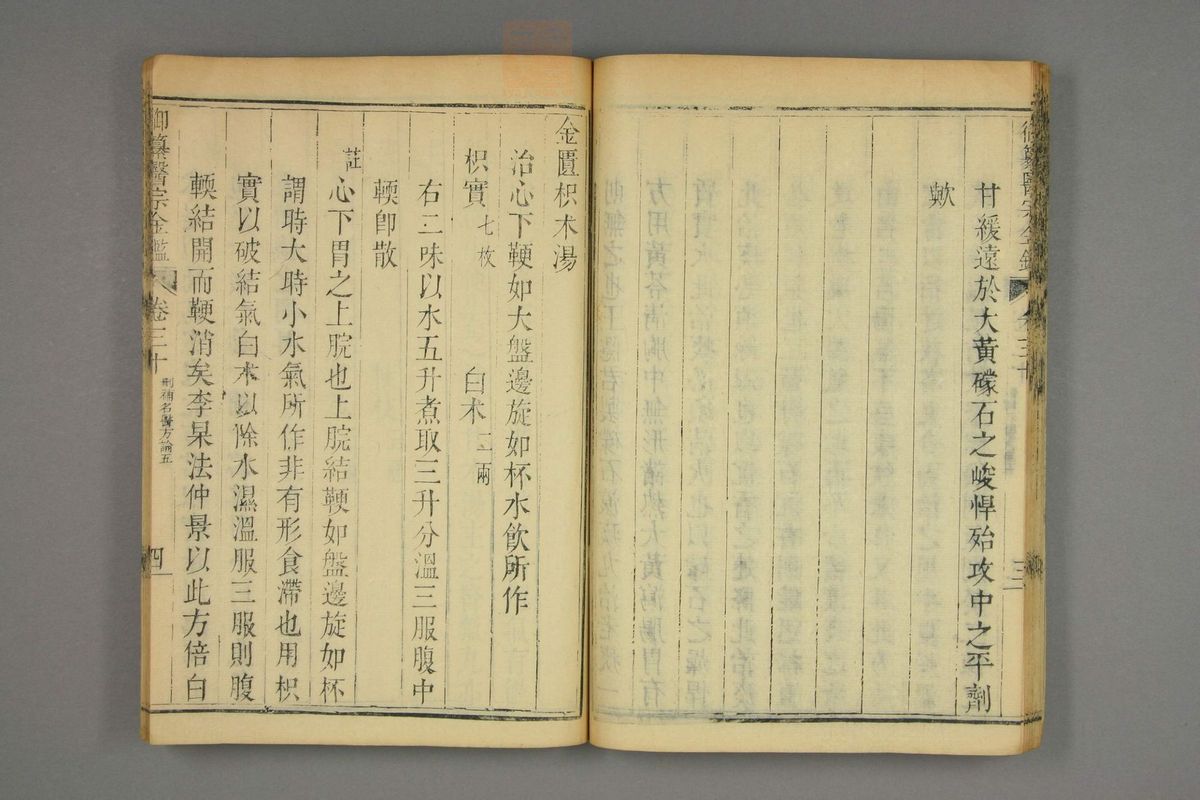 甘緩遠於大黃礞石之峻悍殆攻中之平劑
歟
三
金匱枳朮湯
治心下鞕如大盤邊旋如杯水飲所作
枳實七枚 白朮二兩
右二味以水五升煮取三升分溫三服腹中
輭卽散
註心下胃之上脘也上脘結鞕如盤邊旋如杯
謂時大時小水氣所作非有形食滯也用枳
實以破結氣白朮以除水濕溫服三服則腹
輭結開而鞕消矣李杲法仲景以此方倍白
御纂醫宗金鑑 卷三十 刪補名醫方論五 四